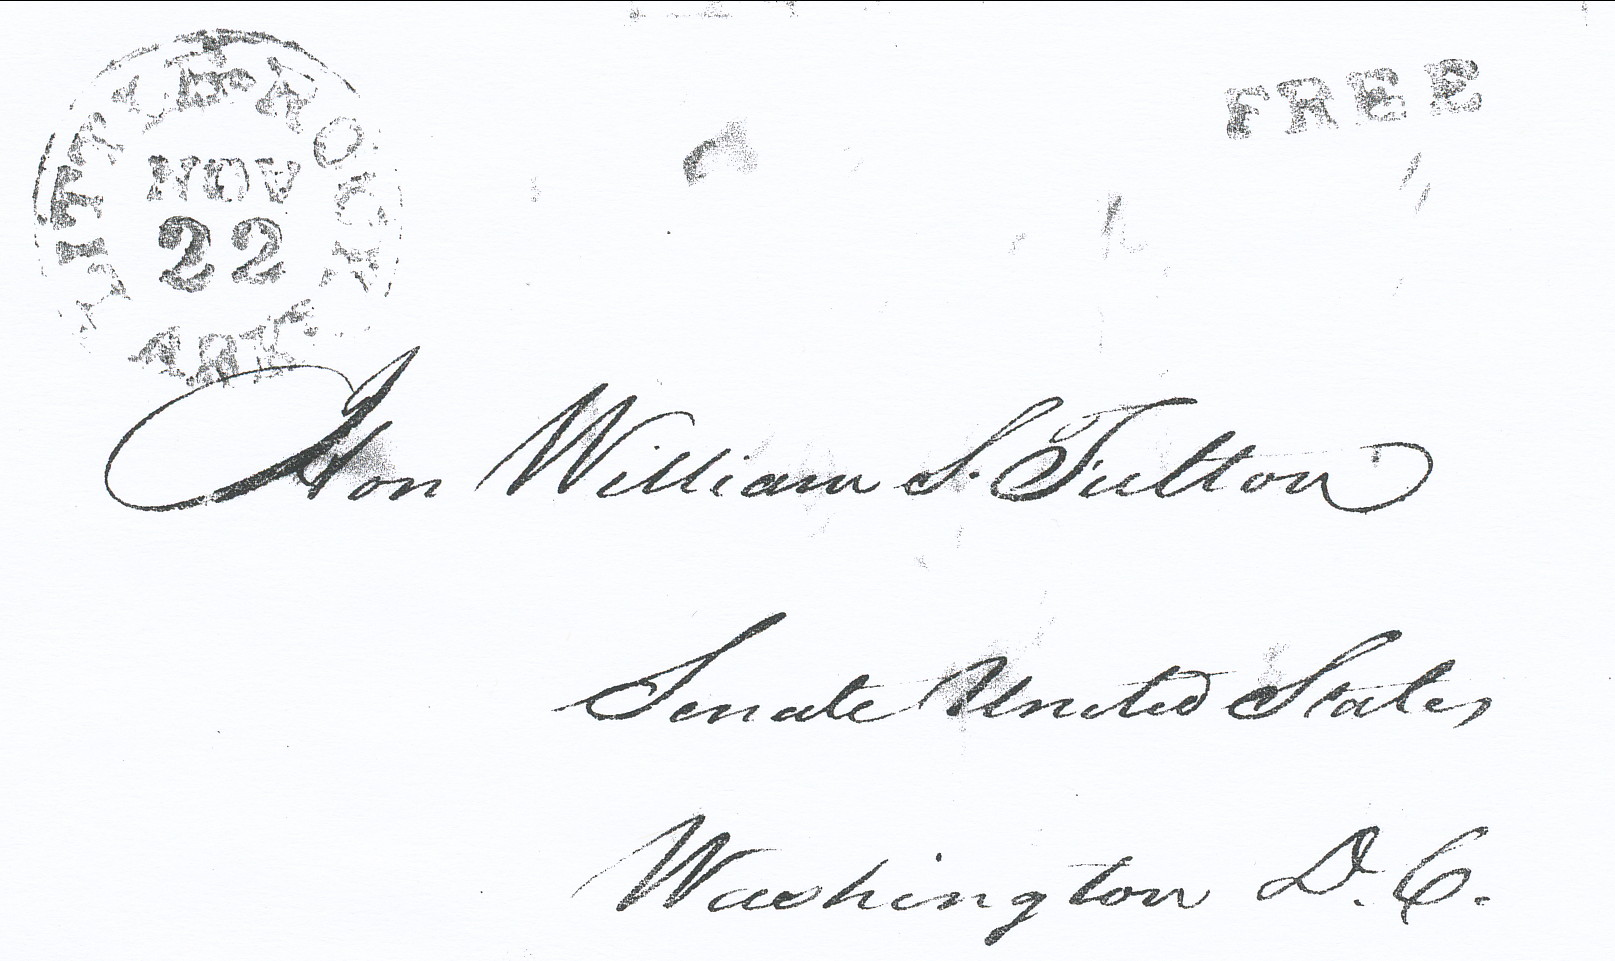 LITTLE-ROCK
NOV
22
ARK.
FREE
Hon William S. Fulton
Senate United States
Washington D. C.